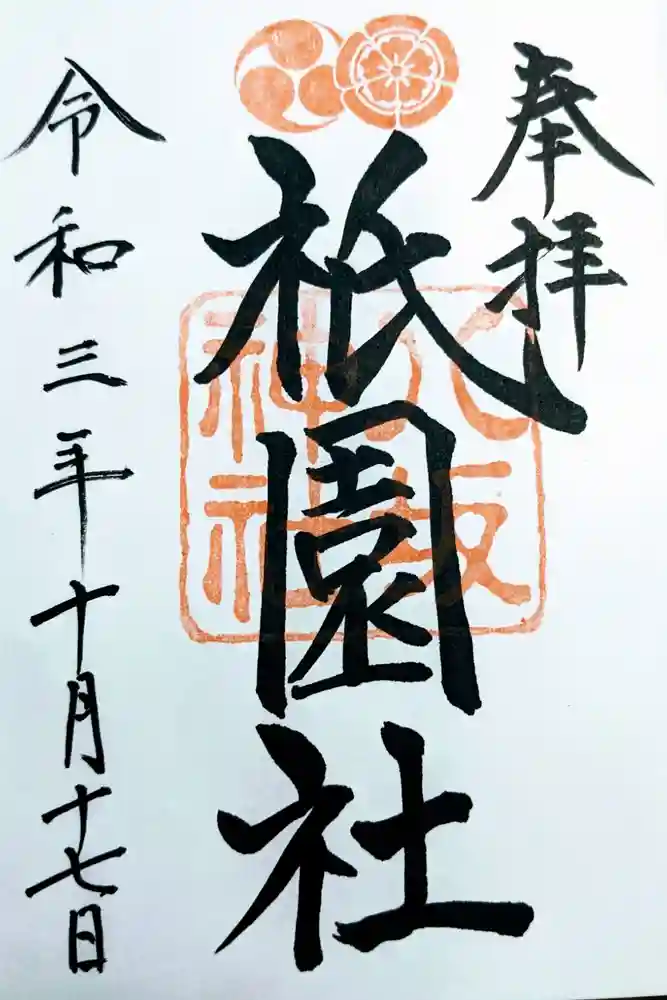 奉拝
祇園社
八坂
神社
令和三年十月十七日